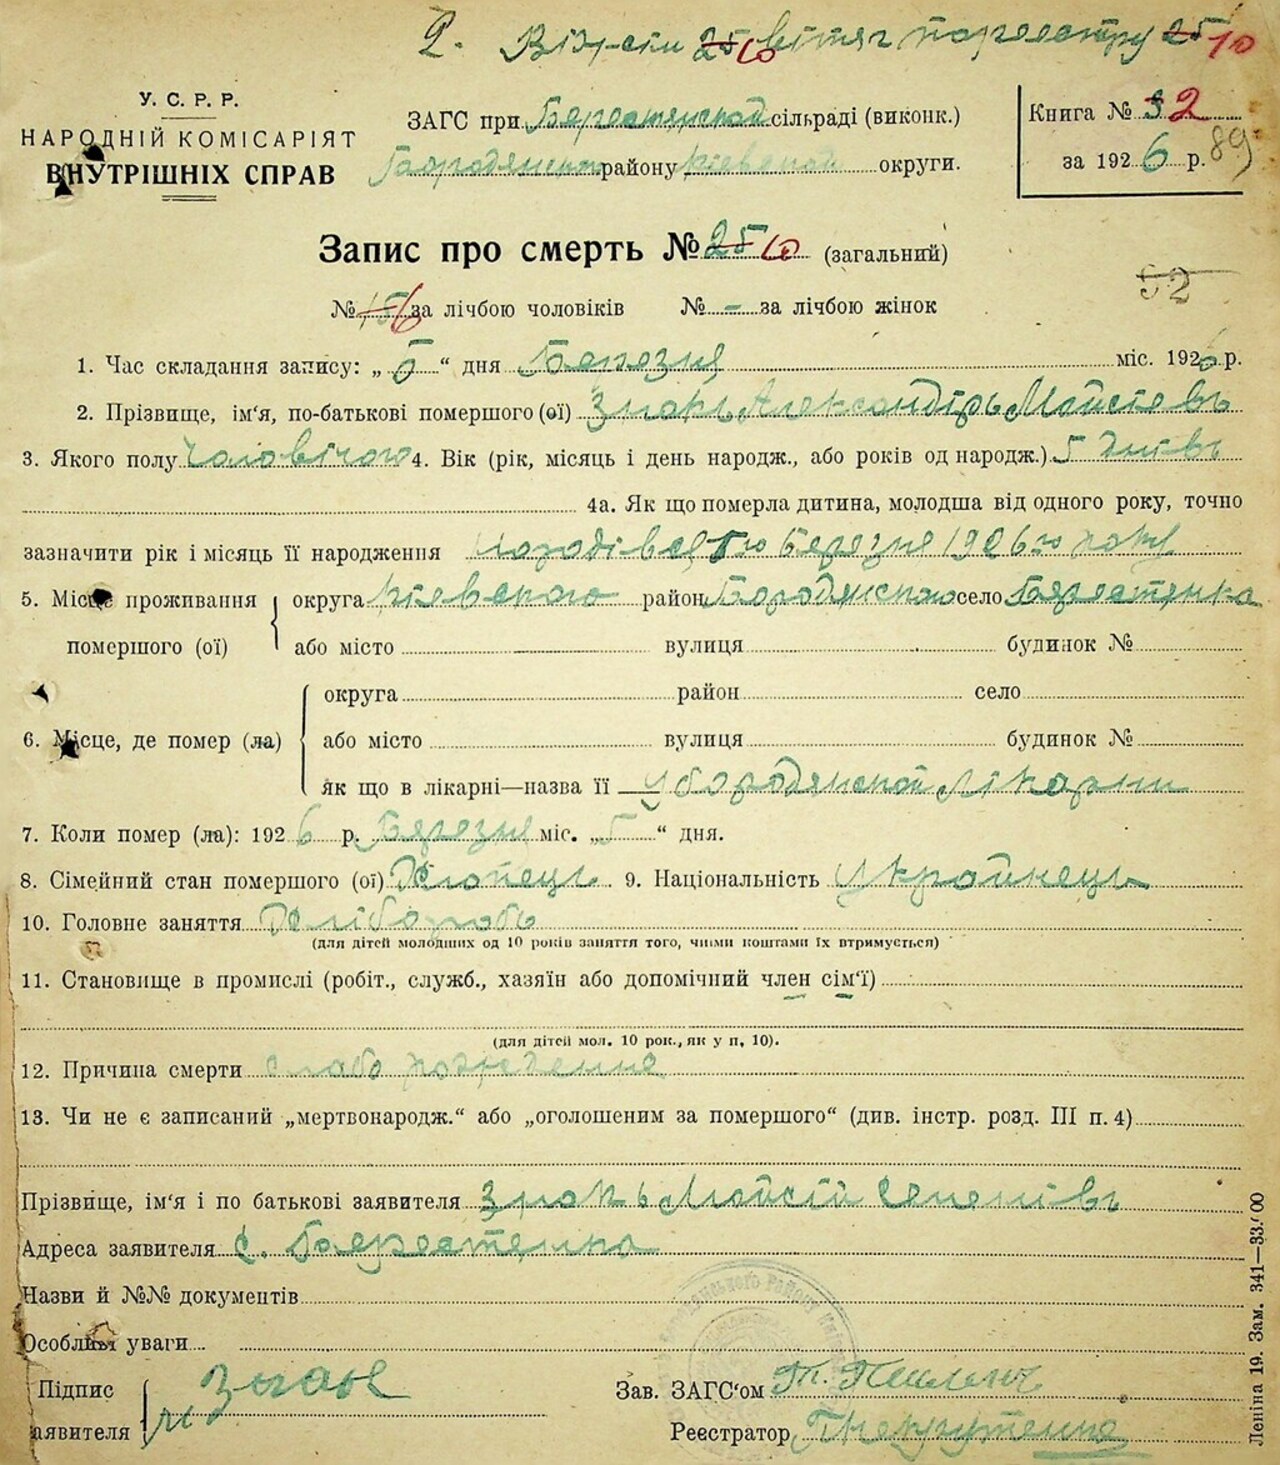 2. 25 10 витяг по реєстру 25 10
У. С. Р. Р.
НАРОДНІЙ КОМІСАРІЯТ
ВНУТРІШНІХ СПРАВ
ЗАГС при Берестянской сільраді (виконк.)
Бородянского району Киевской округи.
Книга № 32
за 1926 р. 89
Запис про смерть № 25 10 (загальний)
52
№ 15 6 за лічбою чоловіків № - за лічбою жінок
1. Час складання запису: „ 5 “ дня Березня міс. 1926 р.
2. Прізвище, ім'я, по-батькові помершого (ої) Знакъ Александръ Мойсіевъ
3. Якого полу Чоловічого 4. Вік (рік, місяць і день народж., або років од народж.) 5 днівъ
4а. Як що померла дитина, молодша від одного року, точно
зазначити рік і місяць її народження березня 1926 го року
5. Місце проживання помершого (ої) округа Киевского район Бородянского село Берестянка
або місто вулиця будинок №
6. Місце, де помер (ла) округа район село
або місто вулиця будинок №
як що в лікарні—назва її У Бородянской Лікарни
7. Коли помер (ла): 1926 р. Березня міс. „ 5 “ дня.
8. Сімейний стан помершого (ої) Хлопець 9. Національність Украйнець
10. Головне заняття Хліборобъ
(для дітей молодших од 10 років заняття того, чиїми коштами їх втримується)
11. Становище в промислі (робіт., служб., хазяїн або допомічний член сім'ї)
(для дітей мол. 10 рок., як у п. 10).
12. Причина смерти слабо рождение
13. Чи не є записаний „мертвонародж.“ або „оголошеним за помершого“ (див. інстр. розд. III п. 4)
Прізвище, ім'я і по батькові заявителя Знакъ Мойсій
Адреса заявителя с. Берестянка
Назви й №№ документів
Особливі уваги
Підпис заявителя Знак
Зав. ЗАГС'ом
Реєстратор
Леніна 19. Зам. 341—33.000